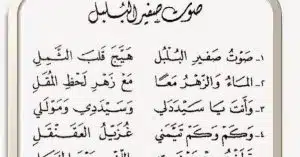 صوت صفير البلبل
١ـ صَوْتُ صَفِيرِ البُلْبُلِ هَيَّجَ قَلْبَ الثَّمِلِ
٢ـ المَاءُ وَالزَّهْرُ مَعًا مَعْ زَهْرِ لَحْظِ المُقَلِ
٣ـ وَأَنْتَ يَا سَيِّدَدَلِي وَسَيِّدَدِي وَمَوْلَى لِي
٤ـ وَكَمْ وَكَمْ تَيَّمَنِي غُزَيِّلٌ العَقَنْقَلِ